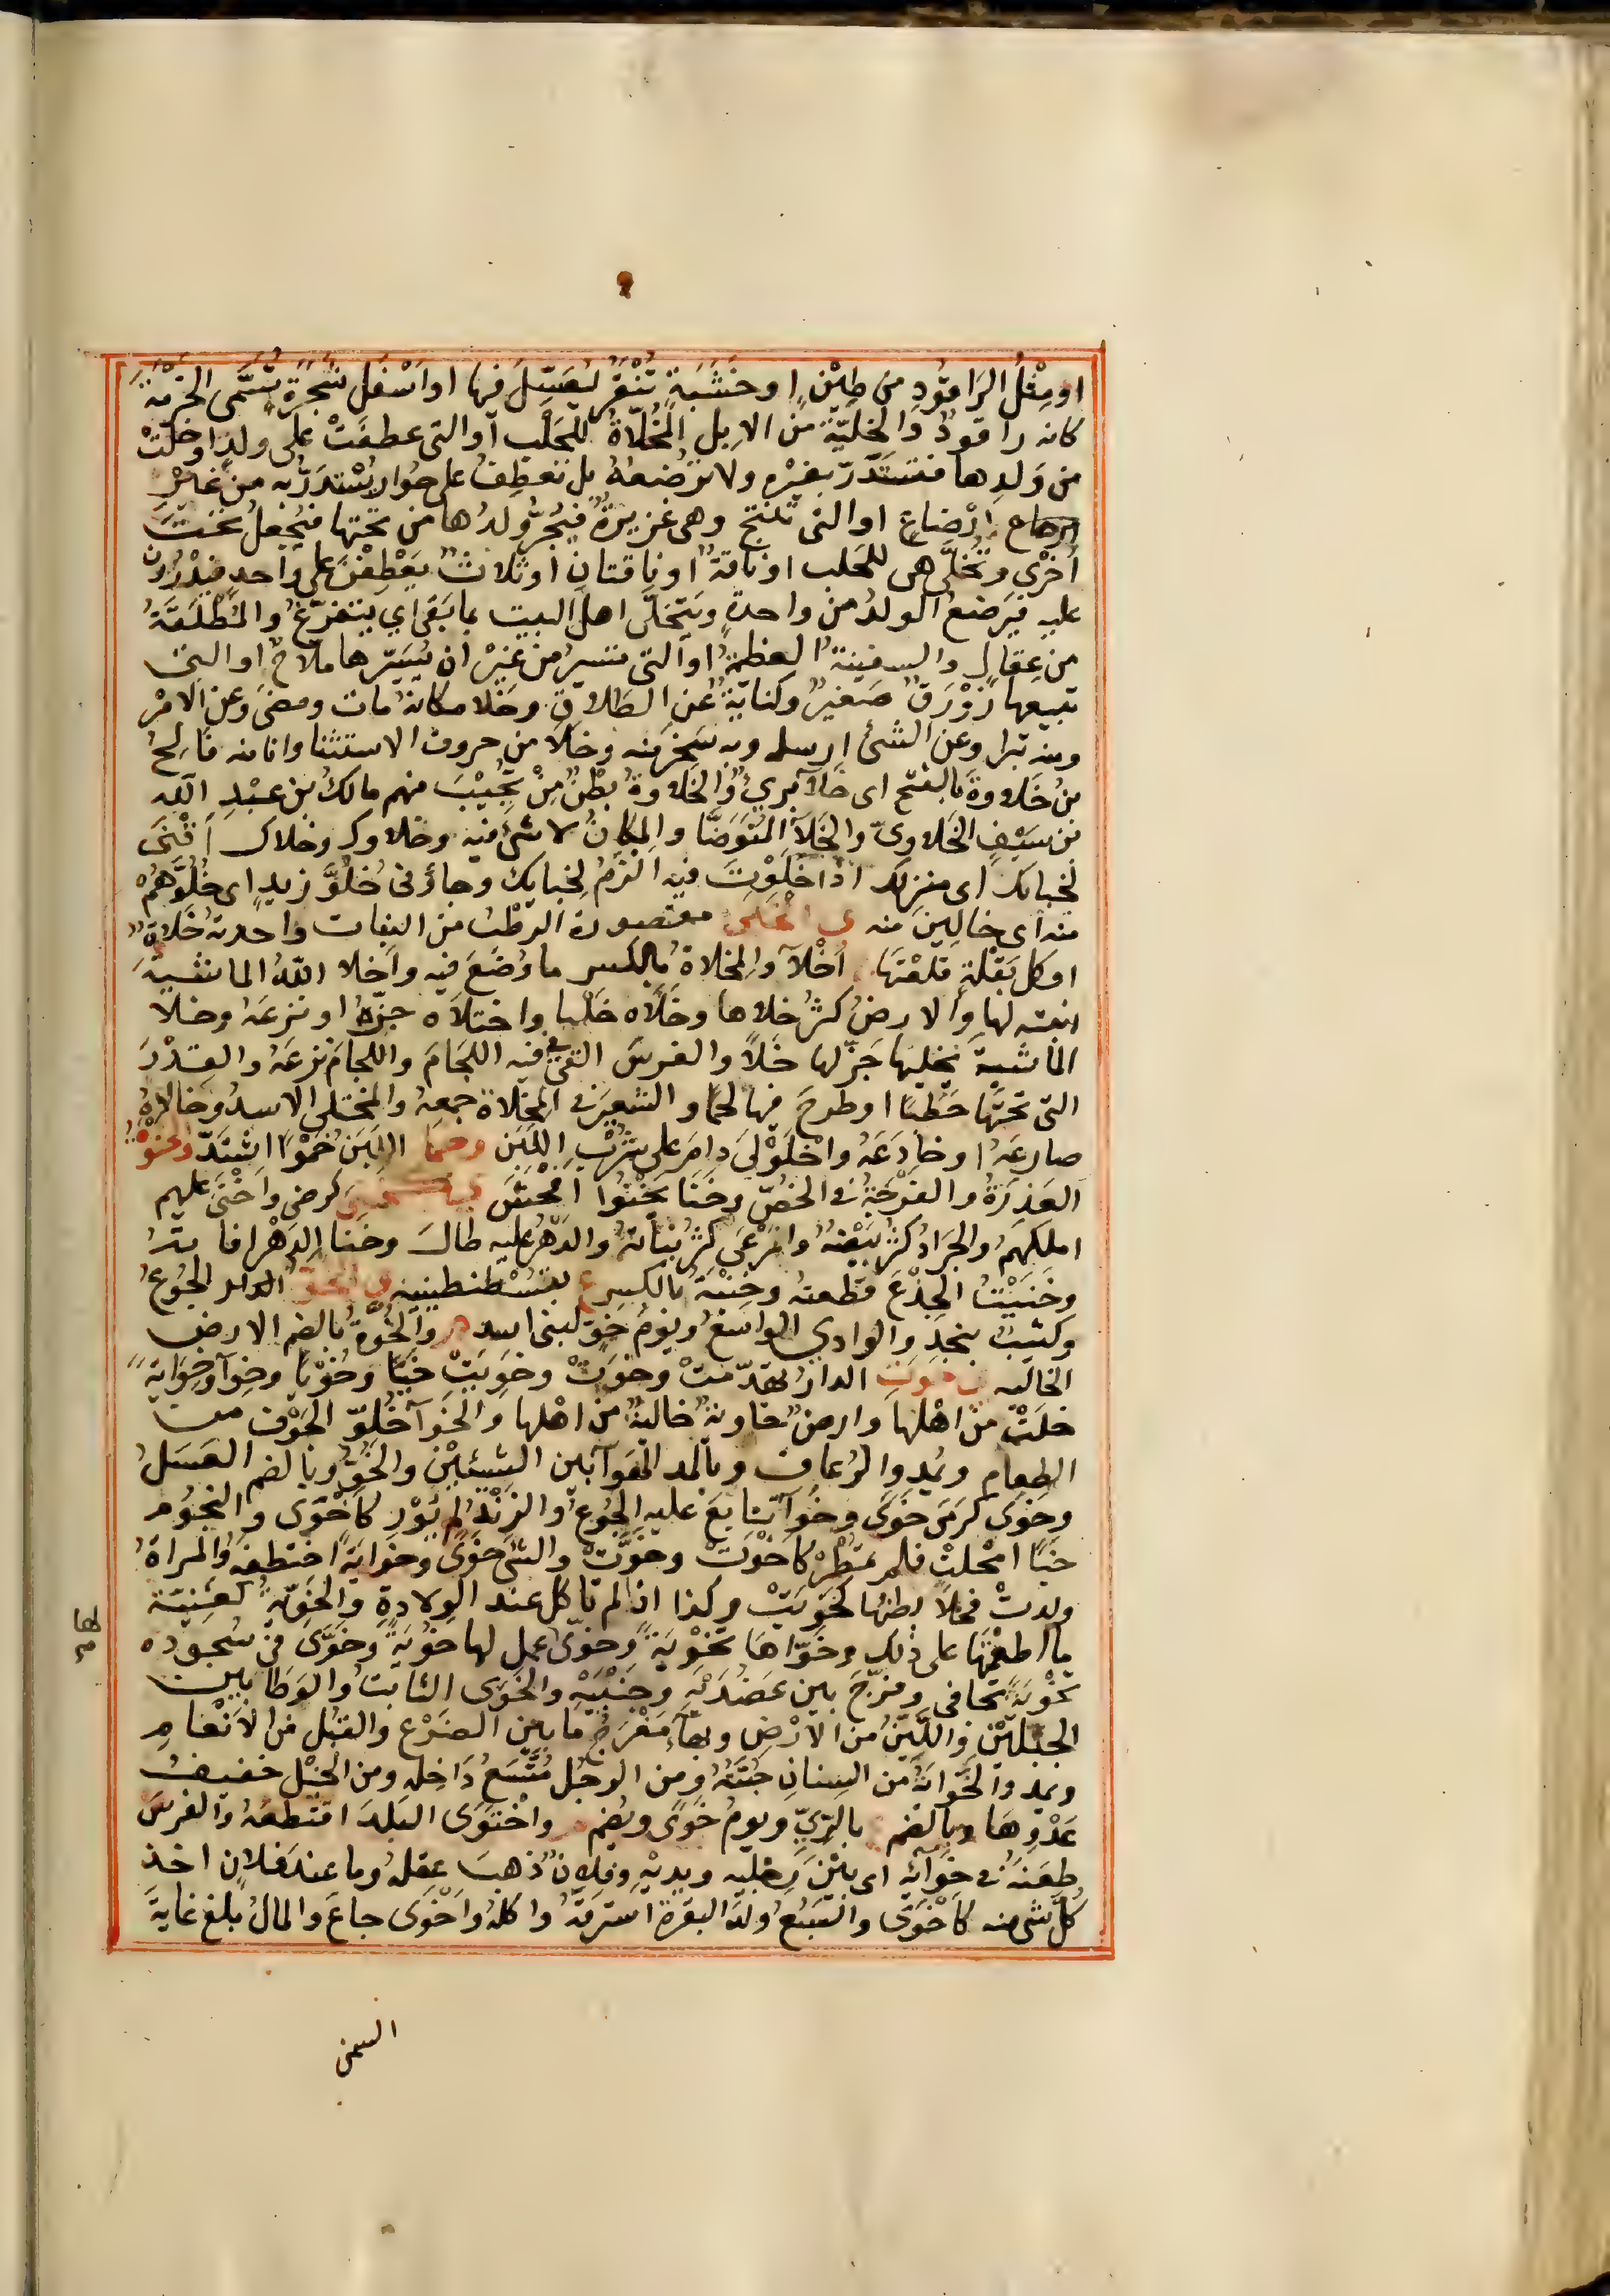 اومِثْلُ الرَاقُودِ من طِيْنٍ اوخَشَبَةٍ تُنْقَرُ ليُعَسِّلَ فيها اواَسْفَل شَجَرَةٍ تُسَمَّى الخَزَمَةَ
كانه راقودٌ وَالخَلِيَّةُ من الاِبِلِ المُخَلَّاةُ للحَلْب اوالتى عطفَتْ على ولدٍ اوخَلَتْ
من وَلَدِها فتَستَدَرُّ بغيْرِه ولا تُرْضِعُهُ بل تعطِفُ على حُوارٍ يُسْتَدَرُّ به من غَيْر
اِرْضاعٍ اوالتى تُنْتَج وهى غزيرةٌ فيُجَرُّ وَلَدُها من تحتها فيُجْعَلُ تَحْتَ
اُخْرَى وتُخَلَّى هى للحَلب اوناقةٌ اوناقتانِ اوثلاثٌ يَعْطِفْنَ على واحدٍ فيَدْرُرْن
عليه فيَرضَعُ الولَدُ من واحدةٍ ويَتخلَّى اهل البيت بما بَقى اي يتفَرّغُ والمُطْلَقَةُ
من عِقالٍ والسفينةُ العظيمةُ اوالتى تسيرُ من غيْرِ ان يُسَيّرها ملّاحٌ اوالتى
تتبعها زَوْرَقٌ صَغيرٌ وكنايةٌ عن الطَلاقِ وخَلا مكانهُ مات ومضى وعن الامْرِ
ومنه تبرا وعن الشئ ارسله وبه سَخِرَ منه وخلا من حروف الاستثنا وانا منه فالِجُ
بنُ خَلاوةَ بالفتح اى خَلآ بَرِيٌّ والخَلاوةُ بطْنٌ مِنْ تُجِيْبَ منهم مالكُ بن عبْدِ الله
بن سَيْفٍ الخَلاوىّ والخَلآُ المُتَوَضَّا والمكانُ لا شئ فيه وخلاوك وخلاك اَقْنَى
لحيايك اى منزلك اذا خَلَوْتَ فيه الزَمُ لحيايك وجاؤ فى خُلُوّ زيدٍ اى خُلُوِّهُمْ
منه اى خالينَ منه ى الخَلَى مقصورة الرَطْبُ من النبات واحدتهُ خَلاةٌ
اوكل بَقْلةٍ قلعْتَها اَخْلآ والمِخلاةُ بالكسر ما وُضعَ فيه واَخلا اللهُ الماشيةَ
انبته لها والارضُ كثُر خلاها وخلَاه خَلْيا واختلاه جزّهُ او نزعَهُ وخلا
الماشيةَ يَخليها جَزّ لها خَلاً والفرسَ القى فيه اللجَامَ واللجامَ نزعَهُ والقِدْرَ
القى تحتَها حَطَبًا اوطرحَ فيها لحما والشعيرَ فى المِخْلاة جمعهُ والمُختلى الاسدُ وخالاهُ
صارعَهُ اوخادَعَهُ واخْلَوْلَى دامَ على شُرْبِ اللبَن وخما اللبَن خُمُوًّا اشتَدّ والخَنْوَةُ
العَذرَةُ والفُرْجَةُ فى الخُصِّ وخَنَا يَخْنُوا افحْشَ كرضى واَخْنَى عليهم
اهلكهُمْ والجَرَادُ كثُر بَيْضُهُ والمَرْعى كثُر نباتهُ والدَهرُ عليه طالَ وخنا الدَهْرِ افاتهُ
وخَنَيْتُ الجِذْعَ قطعتهُ وخِنْيَةُ بالكسر ع بقُسْطَنطينية و الخَوُّ الجُوعُ
وكثيبٌ بنجدٍ والوادي الواسعُ ويومُ خَوٍّ لبنى اسد م والخُوّةُ بالضم الارض
الخاليه ى خوَتِ الدارُ تهَدّمَتْ وخَوَتْ وخَوِيَتْ خَيًّا وخُوْيًا وخوآ وخَوايةً
خلَتْ من اهْلها وارضٌ خاويةٌ خاليةٌ من اهْلها والخَوآ خُلُوّ الجَوْف من
الطعامِ ويُمد والرُعاف وبالمد الهَوآ بين الشيئيْن والخُوُّ وبالضم العَسَلُ
وخَوَى كرَمَى خَوَى وخَوآ تتابعَ عليه الجُوعُ والزَنْدُ لم يُوْرِ كاَخْوَى والنجوم
خَيًّا امْحلتْ فلم تمْطِرْ كاخْوَتْ وخَوَّتْ والشئ خَوًى وخَوايةً اختطفهُ والمراةُ
ولدتْ فخلا بطنها كخَويَتْ وكذا اذا لم تاكل عند الوِلادةِ والخَوِيّةُ كغنيّة
ما اطعَمْتَها على ذلك وخَوّاها تَخْوِيةً وخوى عمل لها خَوِيّةً وخَوَّى فى سُجوده
تَخْوِيَةً تجافى وفرّجَ بين عَضُدَيْه وجَنْبَيْه والخَوى الثابتُ والوَطا بين
الجَبَلَيْن واللَيّنُ من الارْض وبهآٍ مَفْرَجُ ما بين الضرْع والقبُل من الاَنْعام
ويمد والخَوَاةُ من السِنانِ جُبَّتهُ ومن الرحْل مُتَّسَعُ دَاخِلهِ ومن الخيْل خفيفُ
عَدْوِهَا وبالضم بالرَيّ ويومُ خَوًى ويُضم واخْتَوَى البَلدَ اقتَطعهُ والفرسَ
طعَنهُ فى خَوآئه اى بيْن رجليه ويديْه وفلانٌ ذهبَ عقلهُ وما عند فلان اخذ
كُلّ شى منه كاَخْوَى والسَبُعُ ولدَ البقرة استرقهُ واكلهُ واَخْوَى جاعَ والمالُ بلغ غايةَ
لها
السمن